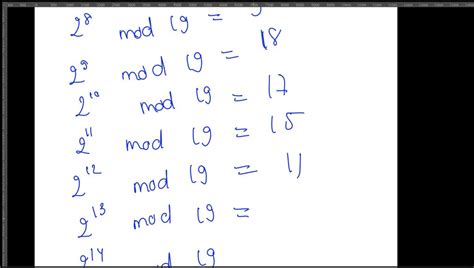 2⁸ mod 19 =
2⁹ mod 19 = 18
2¹⁰ mod 19 = 17
2¹¹ mod 19 = 15
2¹² mod 19 = 11
2¹³ mod 19 =
2¹⁴ mod 19